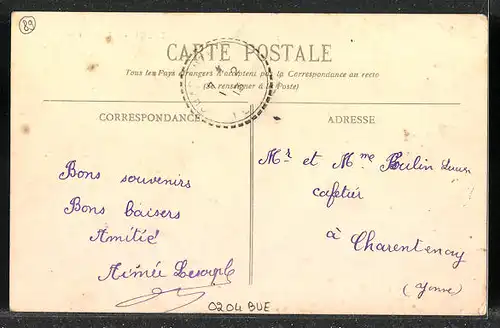 89
CARTE POSTALE
Tous les Pays étrangers n'acceptent pas la Correspondance au recto
(Se renseigner à la Poste)
CORRESPONDANCE
Bons souvenirs
Bons baisers
Amitié
Aimée
ADRESSE
Mr et Mme
cafetier
à Charentenay
(Yonne)
0204 BUE